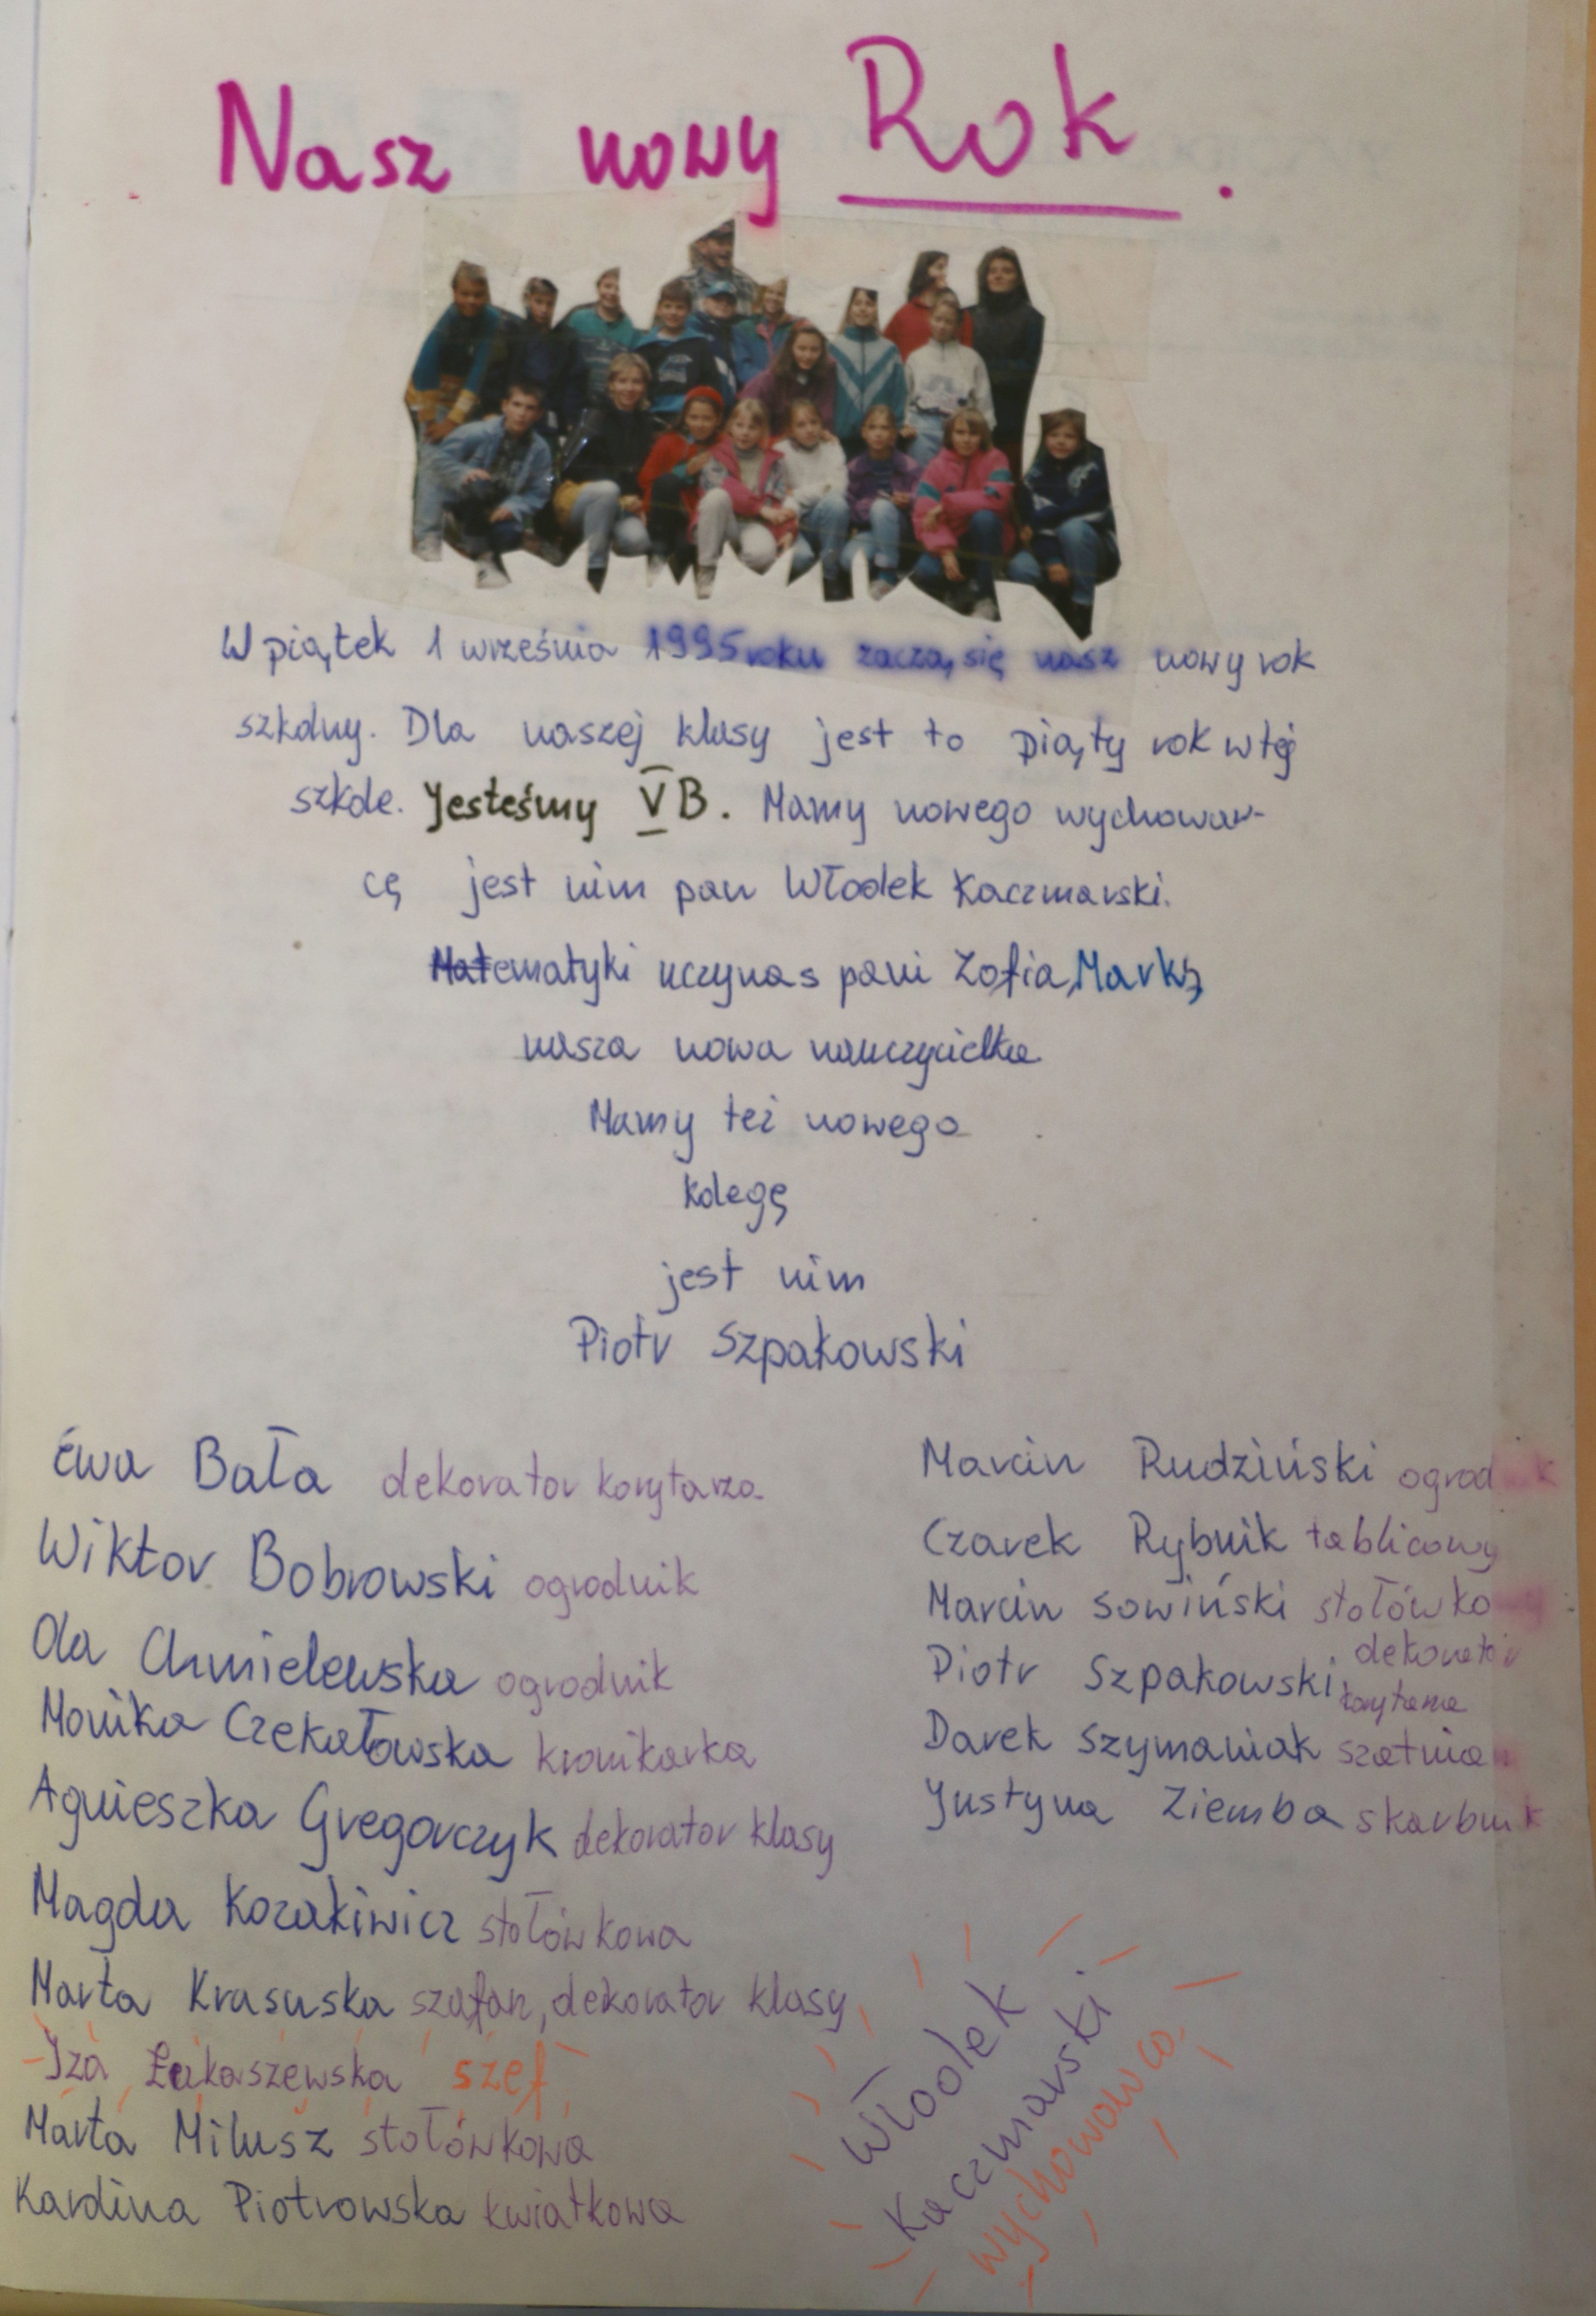 Nasz nowy Rok.
W piątek 1 września 1995 roku zaczą się nasz nowy rok
szkolny. Dla naszej klasy jest to piąty rok w tej
szkole. Jesteśmy V B. Mamy nowego wychowaw-
cę jest nim pan Włodek Kaczmarski.
Matematyki uczy nas pani Zofia Marks,
nasza nowa nauczycielka
Mamy też nowego
kolegę
jest nim
Piotr Szpakowski
Ewa Bała dekorator korytarza
Wiktor Bobrowski ogrodnik
Ola Chmielewska ogrodnik
Monika Czekałowska kronikarka
Agnieszka Gregorczyk dekorator klasy
Magda Kozakiwicz stołówkowa
Marta Krasuska szafarz, dekorator klasy
Iza Łukaszewska szef
Marta Milusz stołówkowa
Karolina Piotrowska kwiatkowa
Marcin Rudziński ogrodnik
Czarek Rybnik tablicowy
Marcin Sowiński stołówkowy
Piotr Szpakowski dekorator
korytarza
Darek Szymaniak
Justyna Ziemba skarbnik
Włodek
Kaczmarski
wychowawca